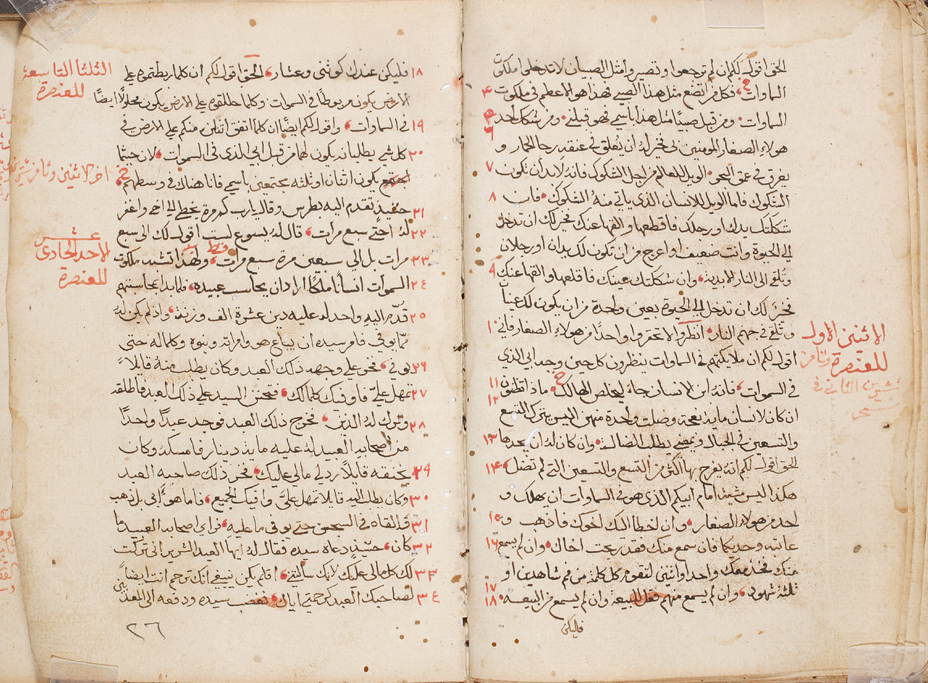 الحق اقول لكم ان لم ترجعوا وتصيروا مثل الصبيان لا تدخلوا ملكوت
السماوات فكل من اتضع مثل هذا الصبي فهذا هو الاعظم في ملكوت ٤
السماوات ومن قبل صبيًا مثل هذا باسمي فهو قبلني ومن شكك احد ٥
هولاء الصغار المومنين بي فخير له ان تعلق في عنقه رحا الحمار و ٦
يغرق في عمق البحر الويل للعالم من اجل الشكوك فانه لا بد ان تكون ٧
الشكوك فاما الويل للانسان الذي ياتي منه الشكوك فان ٨
شككتك يدك او رجلك فاقطعها والقها عنك فخير لك ان تدخل
الى الحيوة وانت ضعيف او اعرج من ان تكون لك يدان او رجلان
وتلقى الى النار الابدية وان شككتك عينك فاقلعها والقها عنك ٩
فخير لك ان تدخل الى الحيوة بعين واحدة من ان يكون لك عينان
وتلقى في جهنم النار انظروا لا تحقروا واحدًا من هولاء الصغار فاني ١٠
اقول لكم ان ملايكتهم في السماوات منظرون كل حين وجه ابي الذي
في السموات فانه ابن الانسان جاء ليخلص الهالك ماذا تظنون ١١ ١٢
ان كان لانسان ماية نعجة وضلت واحدة منهن اليس يترك التسع
والتسعين في الجبال ويمضي يطلب الضالة وان كان له ان يجدها ١٣
الحق اقول لكم انه يفرح بها اكثر من التسع والتسعين التي لم تضل ١٤
هكذا ليس مشية امام ابيكم الذي هو في السماوات ان يهلك و
احد من هولاء الصغار وان اخطا اليك اخوك فاذهب و ١٥
عاتبه وحديكما فان سمع منك فقد ربحت اخاك وان لم يسمع ١٦
منك فخذ معك واحد او اثنين لتقوم كل كلمة من فم شاهدين او
ثلثة شهود وان لم يسمع منهم فقل للبيعة وان لم يسمع من البيعة ١٧ ١٨
فليكن
الاثنين الاول
للعنصرة
١٨ فليكن عندك كوثني وعشار الحق اقول لكم ان كلما ربطتموه على
الارض يكون مربوطًا في السموات وكلما حللتموه على الارض يكون محلولًا ايضًا
١٩ في السماوات واقول لكم ايضًا ان كلما اتفق اثنان منكم على الارض في
٢٠ كل شي يطلبانه يكون لهما من قبل ابي الذي في السموات لان حيثما
يكون اثنان او ثلثه مجتمعين باسمي فانا هناك في وسطهم
٢١ حينيذ تقدم اليه بطرس وقال يارب كم مرة يخطي الي اخي واغفر
٢٢ له احتى سبع مرات قال له يسوع لست اقول لك الى سبع
٢٣ مرات بل الى سبعين مرة سبع مرات ولهذا تشبه ملكوت
٢٤ السموات انسانًا ملكًا اراد ان يحاسب عبيده فلما بدا بمحاسبتهم
٢٥ قدم اليه واحد له عليه دين عشرة الف وزنة واذ لم يكن له
ما يوفي فامر سيده ان يباع هو وامراته وبنوه وكل ماله حتى
٢٦ يوفي فخر على وجهه ذلك العبد وكان يطلب منه قايلًا
٢٧ تمهل علي فاوفيك كلما لك فتحنن السيد على ذلك العبد فاطلقه
٢٨ وترك له الدين فخرج ذلك العبد فوجد عبدًا واحدًا
من اصحابه العبيد له عليه ماية دينار فامسكه وكان
٢٩ يخنقه قايلًا رد لي مالي عليك فخر ذلك صاحبه العبد
٣٠ وكان يطلب اليه قايلا تمهل علي وافيك الجميع فاما هو ابى بل ذهب
٣١ فالقاه في السجن حتى يوفي ما عليه فراى اصحابه العبيد ما
٣٢ كان حينيذ دعاه سيده فقال له ايها العبد الشرير اني تركت
٣٣ لك كل مالي عليك لانك سالتني افلم يكن ينبغي انك ترحم انت ايضًا
٣٤ لصاحبك العبد كرحمتي اياك فغضب سيده ودفعه الى المعذبين
الثلثا التاسعة
للعنصرة
الاحد الحادي
عشر
للعنصرة
٢٦